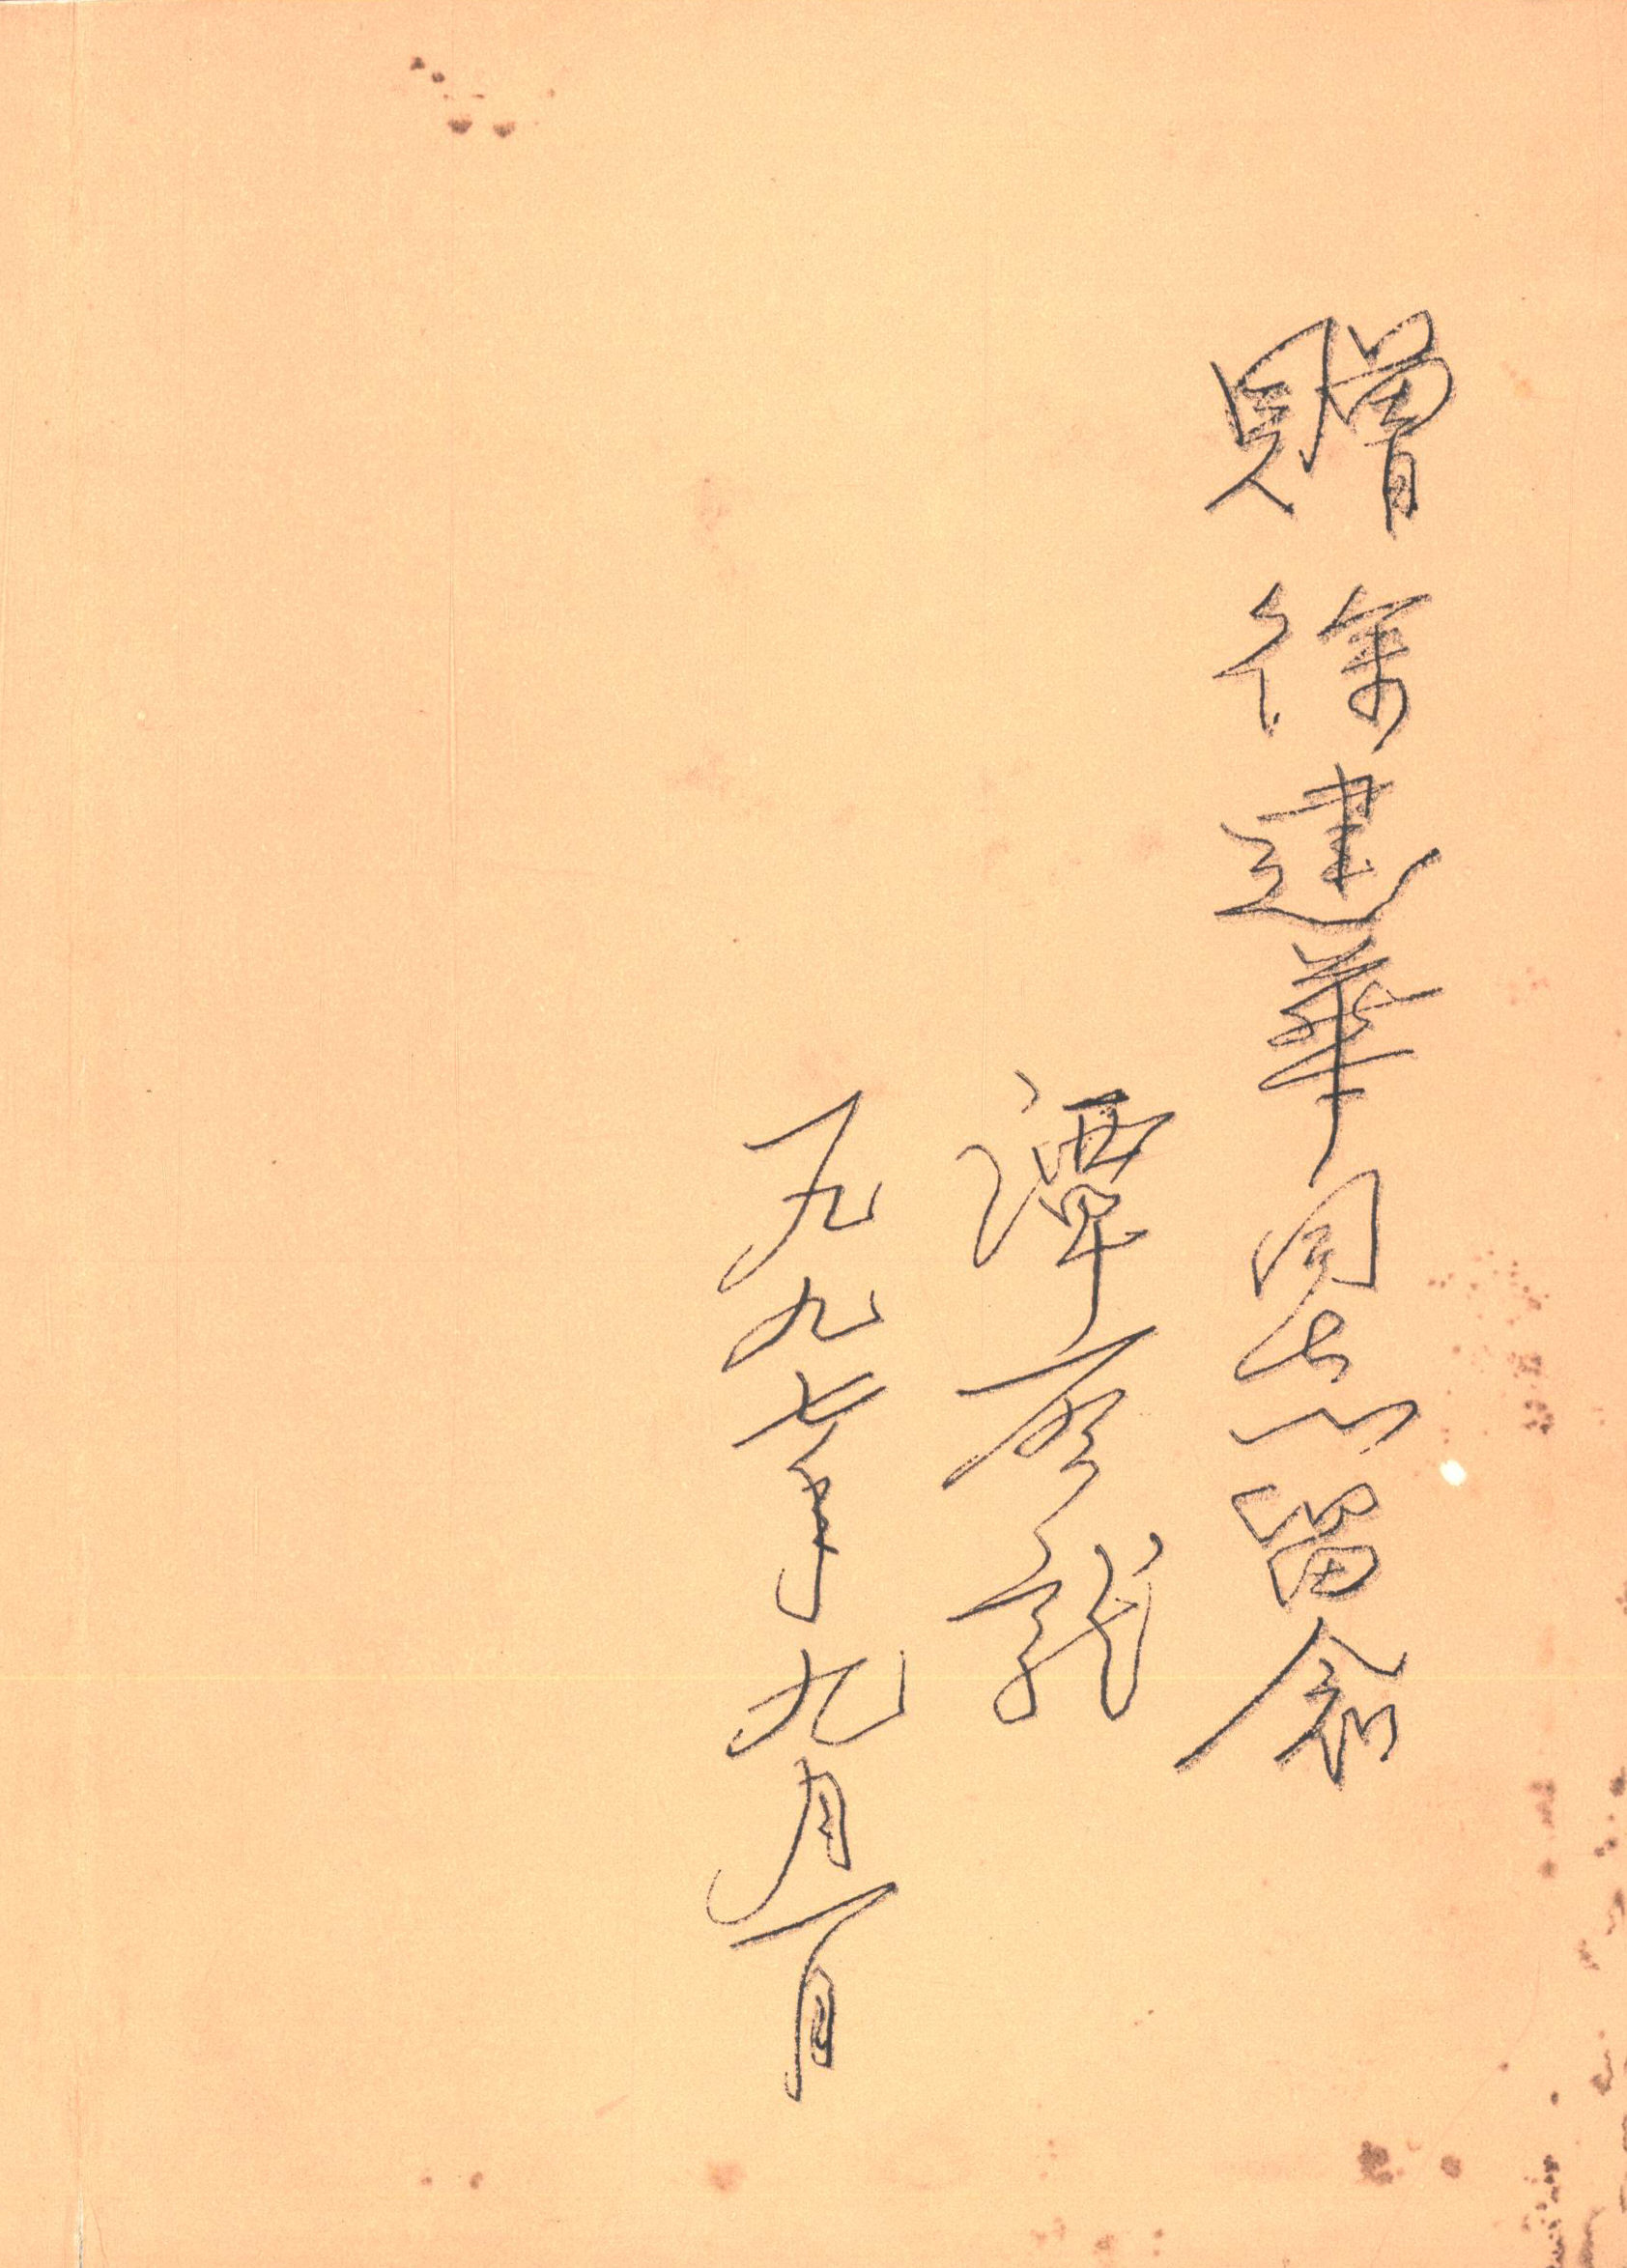 贈徐建華同志留念
譚彦龍
一九九七年九月一日